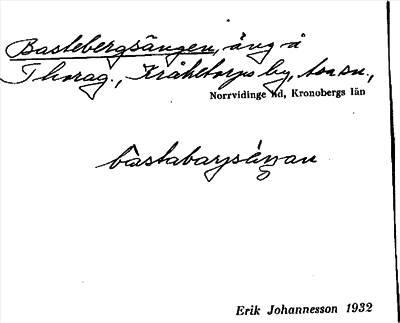 Bastebergsängen, äng å
Thorag., Kråketorps by,
Norrvidinge hd, Kronobergs län
bastabarjsäŋan
Erik Johannesson 1932